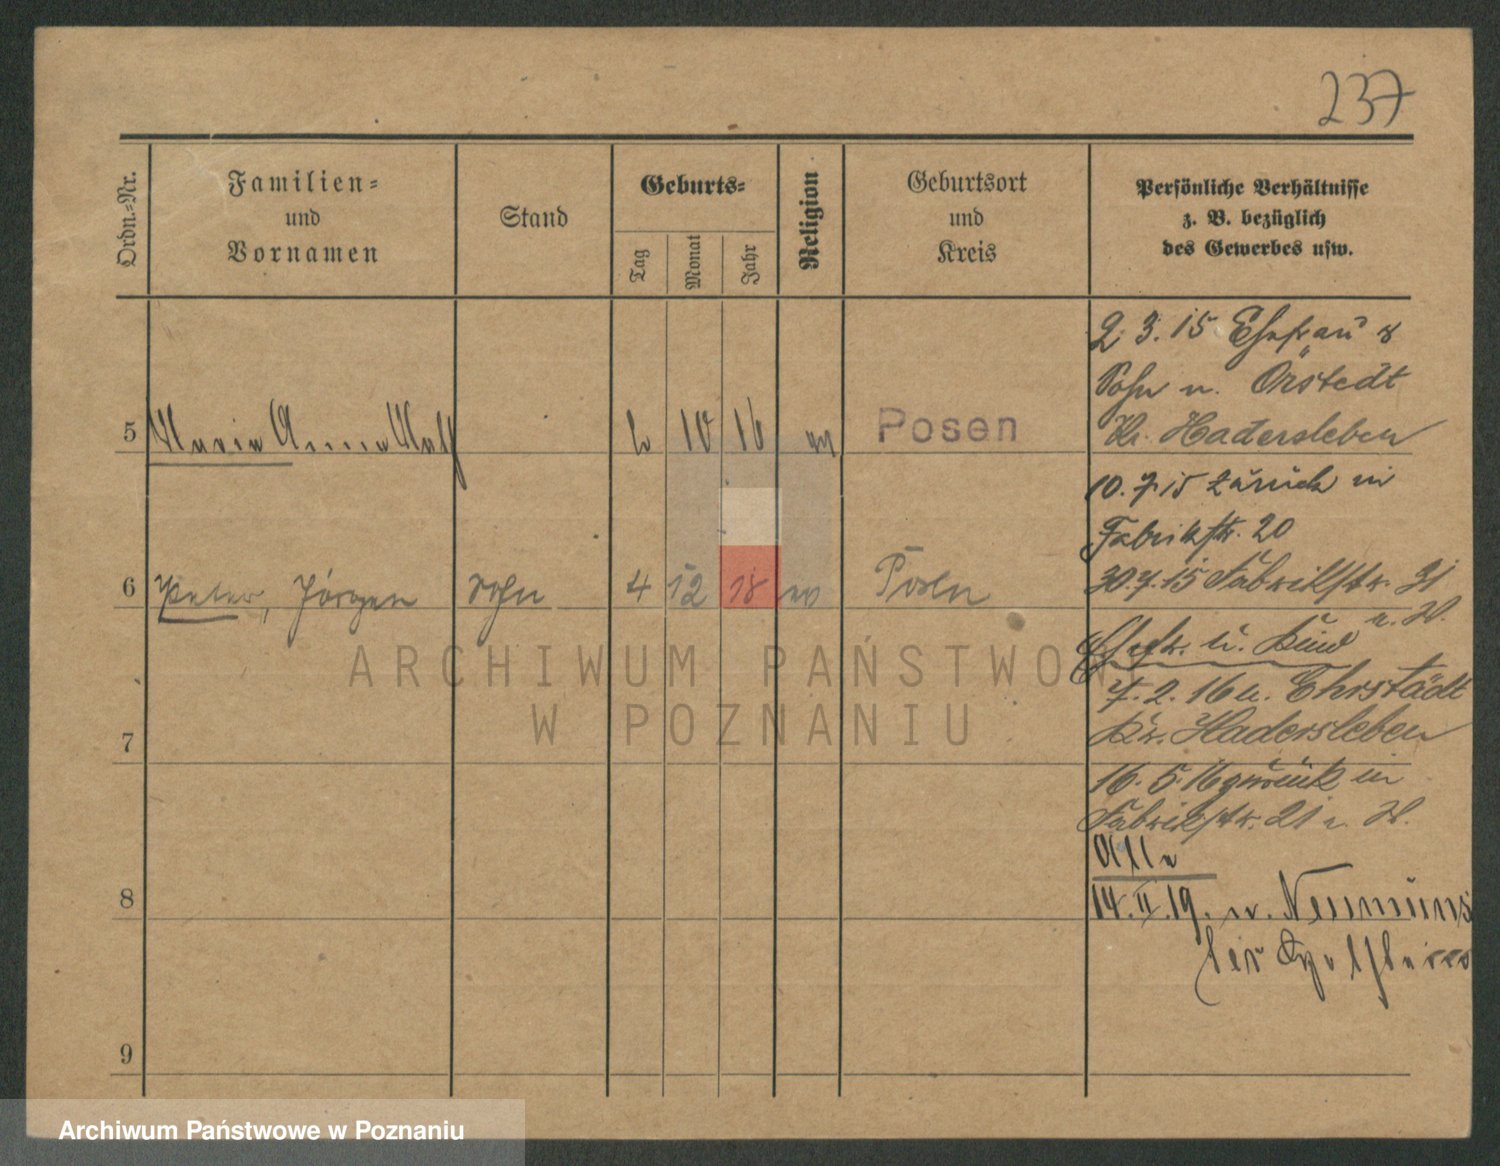 237
Ordn.=Nr.
Familien=
und
Vornamen
Stand
Geburts=
Tag
Monat
Jahr
Religion
Geburtsort
und
Kreis
Persönliche Verhältnisse
z. B. bezüglich
des Gewerbes usw.
2.3.15 Ehefrau &
Sohn n. Örstedt
Kr. Hadersleben
5 Maria Anna 10 16 Posen
10.7.15 zurück in
Fabrikstr. 20
6 Peter, Jörgen Sohn 4 12 18 ev Posen
30.7.15 Fabrikstr. 21
Ehefr. u. Kind
7.2.16 n. Ehrstädt
Kr. Hadersleben
7
16.5.16 zurück in
Fabrikstr. 21
Alle
8
14.II.19. n. Neumüns
ter
9
ARCHIWUM PAŃSTWOWE
W POZNANIU
Archiwum Państwowe w Poznaniu